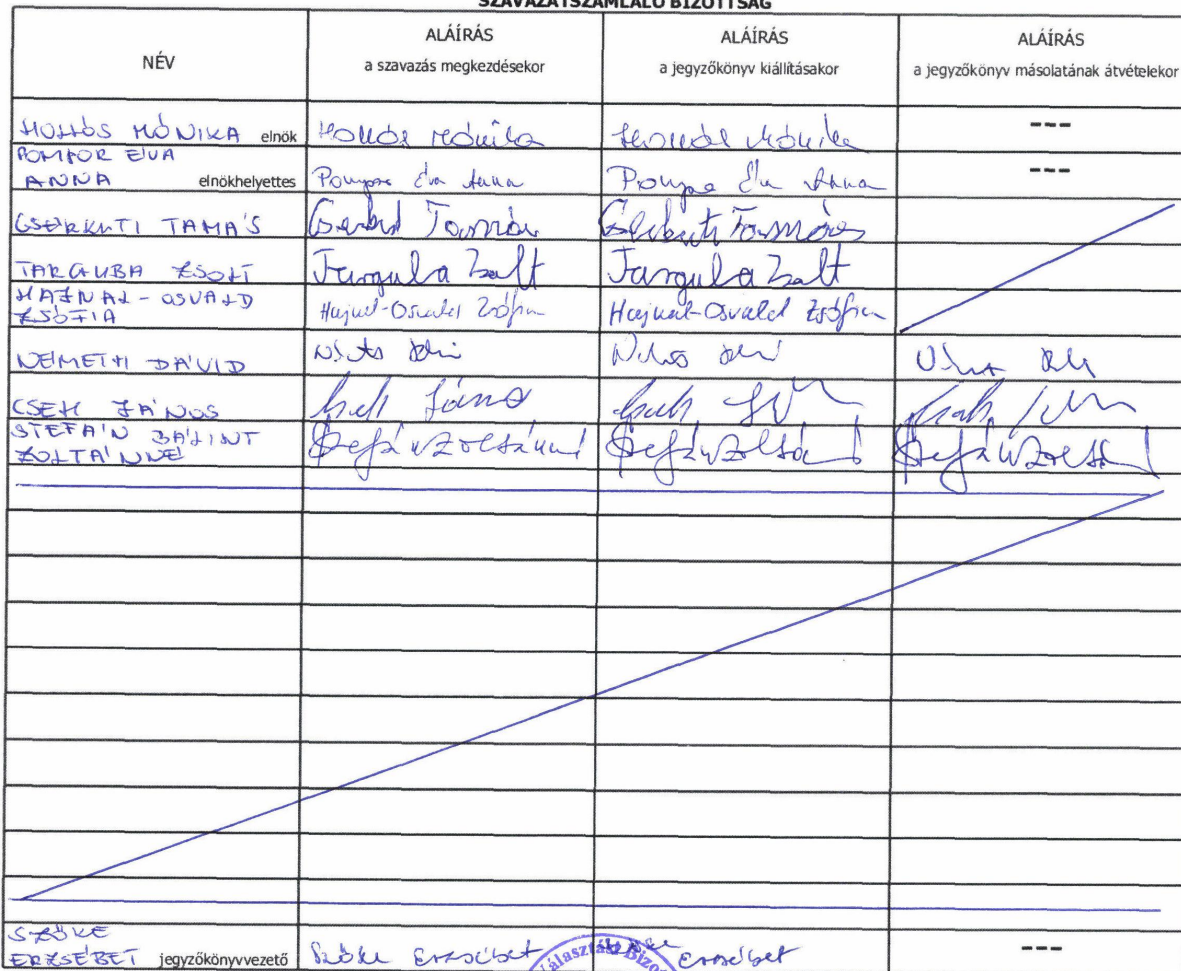 SZAVAZATSZÁMLÁLÓ BIZOTTSÁG
NÉV
ALÁÍRÁS
a szavazás megkezdésekor
ALÁÍRÁS
a jegyzőkönyv kiállításakor
ALÁÍRÁS
a jegyzőkönyv másolatának átvételekor
HOLLÓS MÓNIKA elnök Hollós Mónika Hollós Mónika ---
POMPOR ÉVA
ANNA elnökhelyettes Éva Anna Éva Anna ---
CSERKUTI TAMÁS Tamás Cserkuti Tamás
TARGUBA ZSOLT Targula Zsolt Targula Zsolt
HAJNAL-OSVALD
ZSÓFIA Hajnal-Osvald Zsófia Hajnal-Osvald Zsófia
NÉMETH DÁVID
CSEH JÁNOS Cseh János Cseh Cseh
STEFÁN BÁLINT
ZOLTÁNNÉ Stefán Zoltánné Stefán Zoltánné Stefán
SZŐKE
ERZSÉBET jegyzőkönyvvezető Szőke Erzsébet Szőke Erzsébet ---